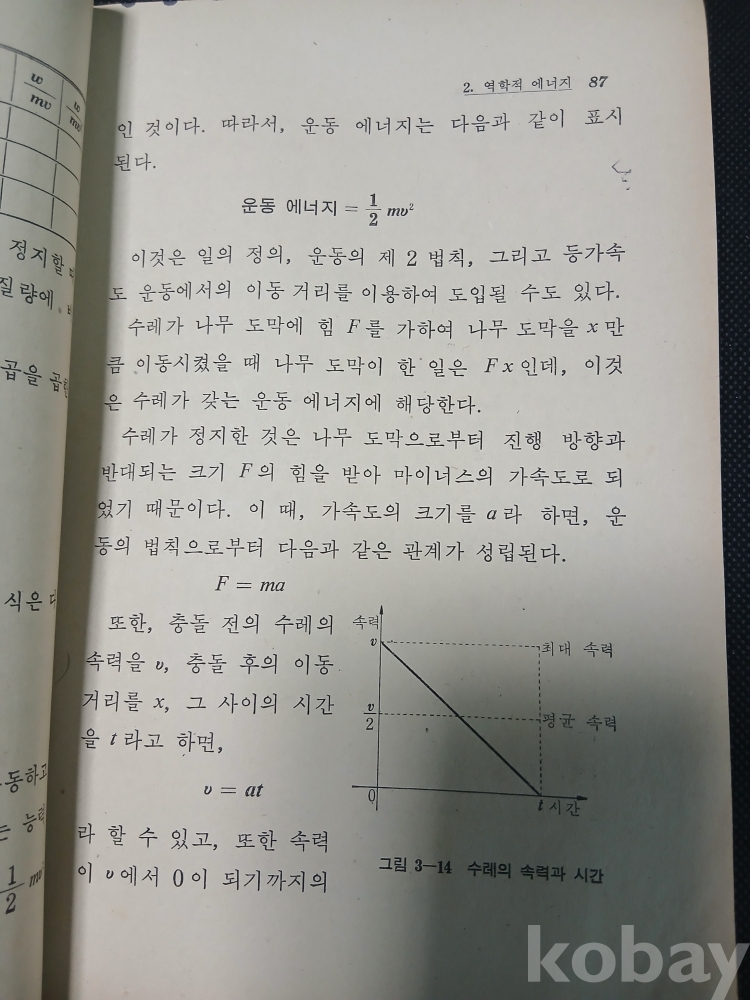 w/mv w/mv
정지할
질량에
곱을 곱한
식은
동하고
는 능력
1/2 mv
2. 역학적 에너지 87
인 것이다. 따라서, 운동 에너지는 다음과 같이 표시
된다.
운동 에너지 = 1/2 mv²
이것은 일의 정의, 운동의 제 2 법칙, 그리고 등가속
도 운동에서의 이동 거리를 이용하여 도입될 수도 있다.
수레가 나무 도막에 힘 F를 가하여 나무 도막을 x만
큼 이동시켰을 때 나무 도막이 한 일은 Fx인데, 이것
은 수레가 갖는 운동 에너지에 해당한다.
수레가 정지한 것은 나무 도막으로부터 진행 방향과
반대되는 크기 F의 힘을 받아 마이너스의 가속도로 되
었기 때문이다. 이 때, 가속도의 크기를 a라 하면, 운
동의 법칙으로부터 다음과 같은 관계가 성립된다.
F = ma
또한, 충돌 전의 수레의
속력을 v, 충돌 후의 이동
거리를 x, 그 사이의 시간
을 t라고 하면,
v = at
라 할 수 있고, 또한 속력
이 v에서 0이 되기까지의
속력
v 최대 속력
v/2 평균 속력
0 t 시간
그림 3—14 수레의 속력과 시간
kobay